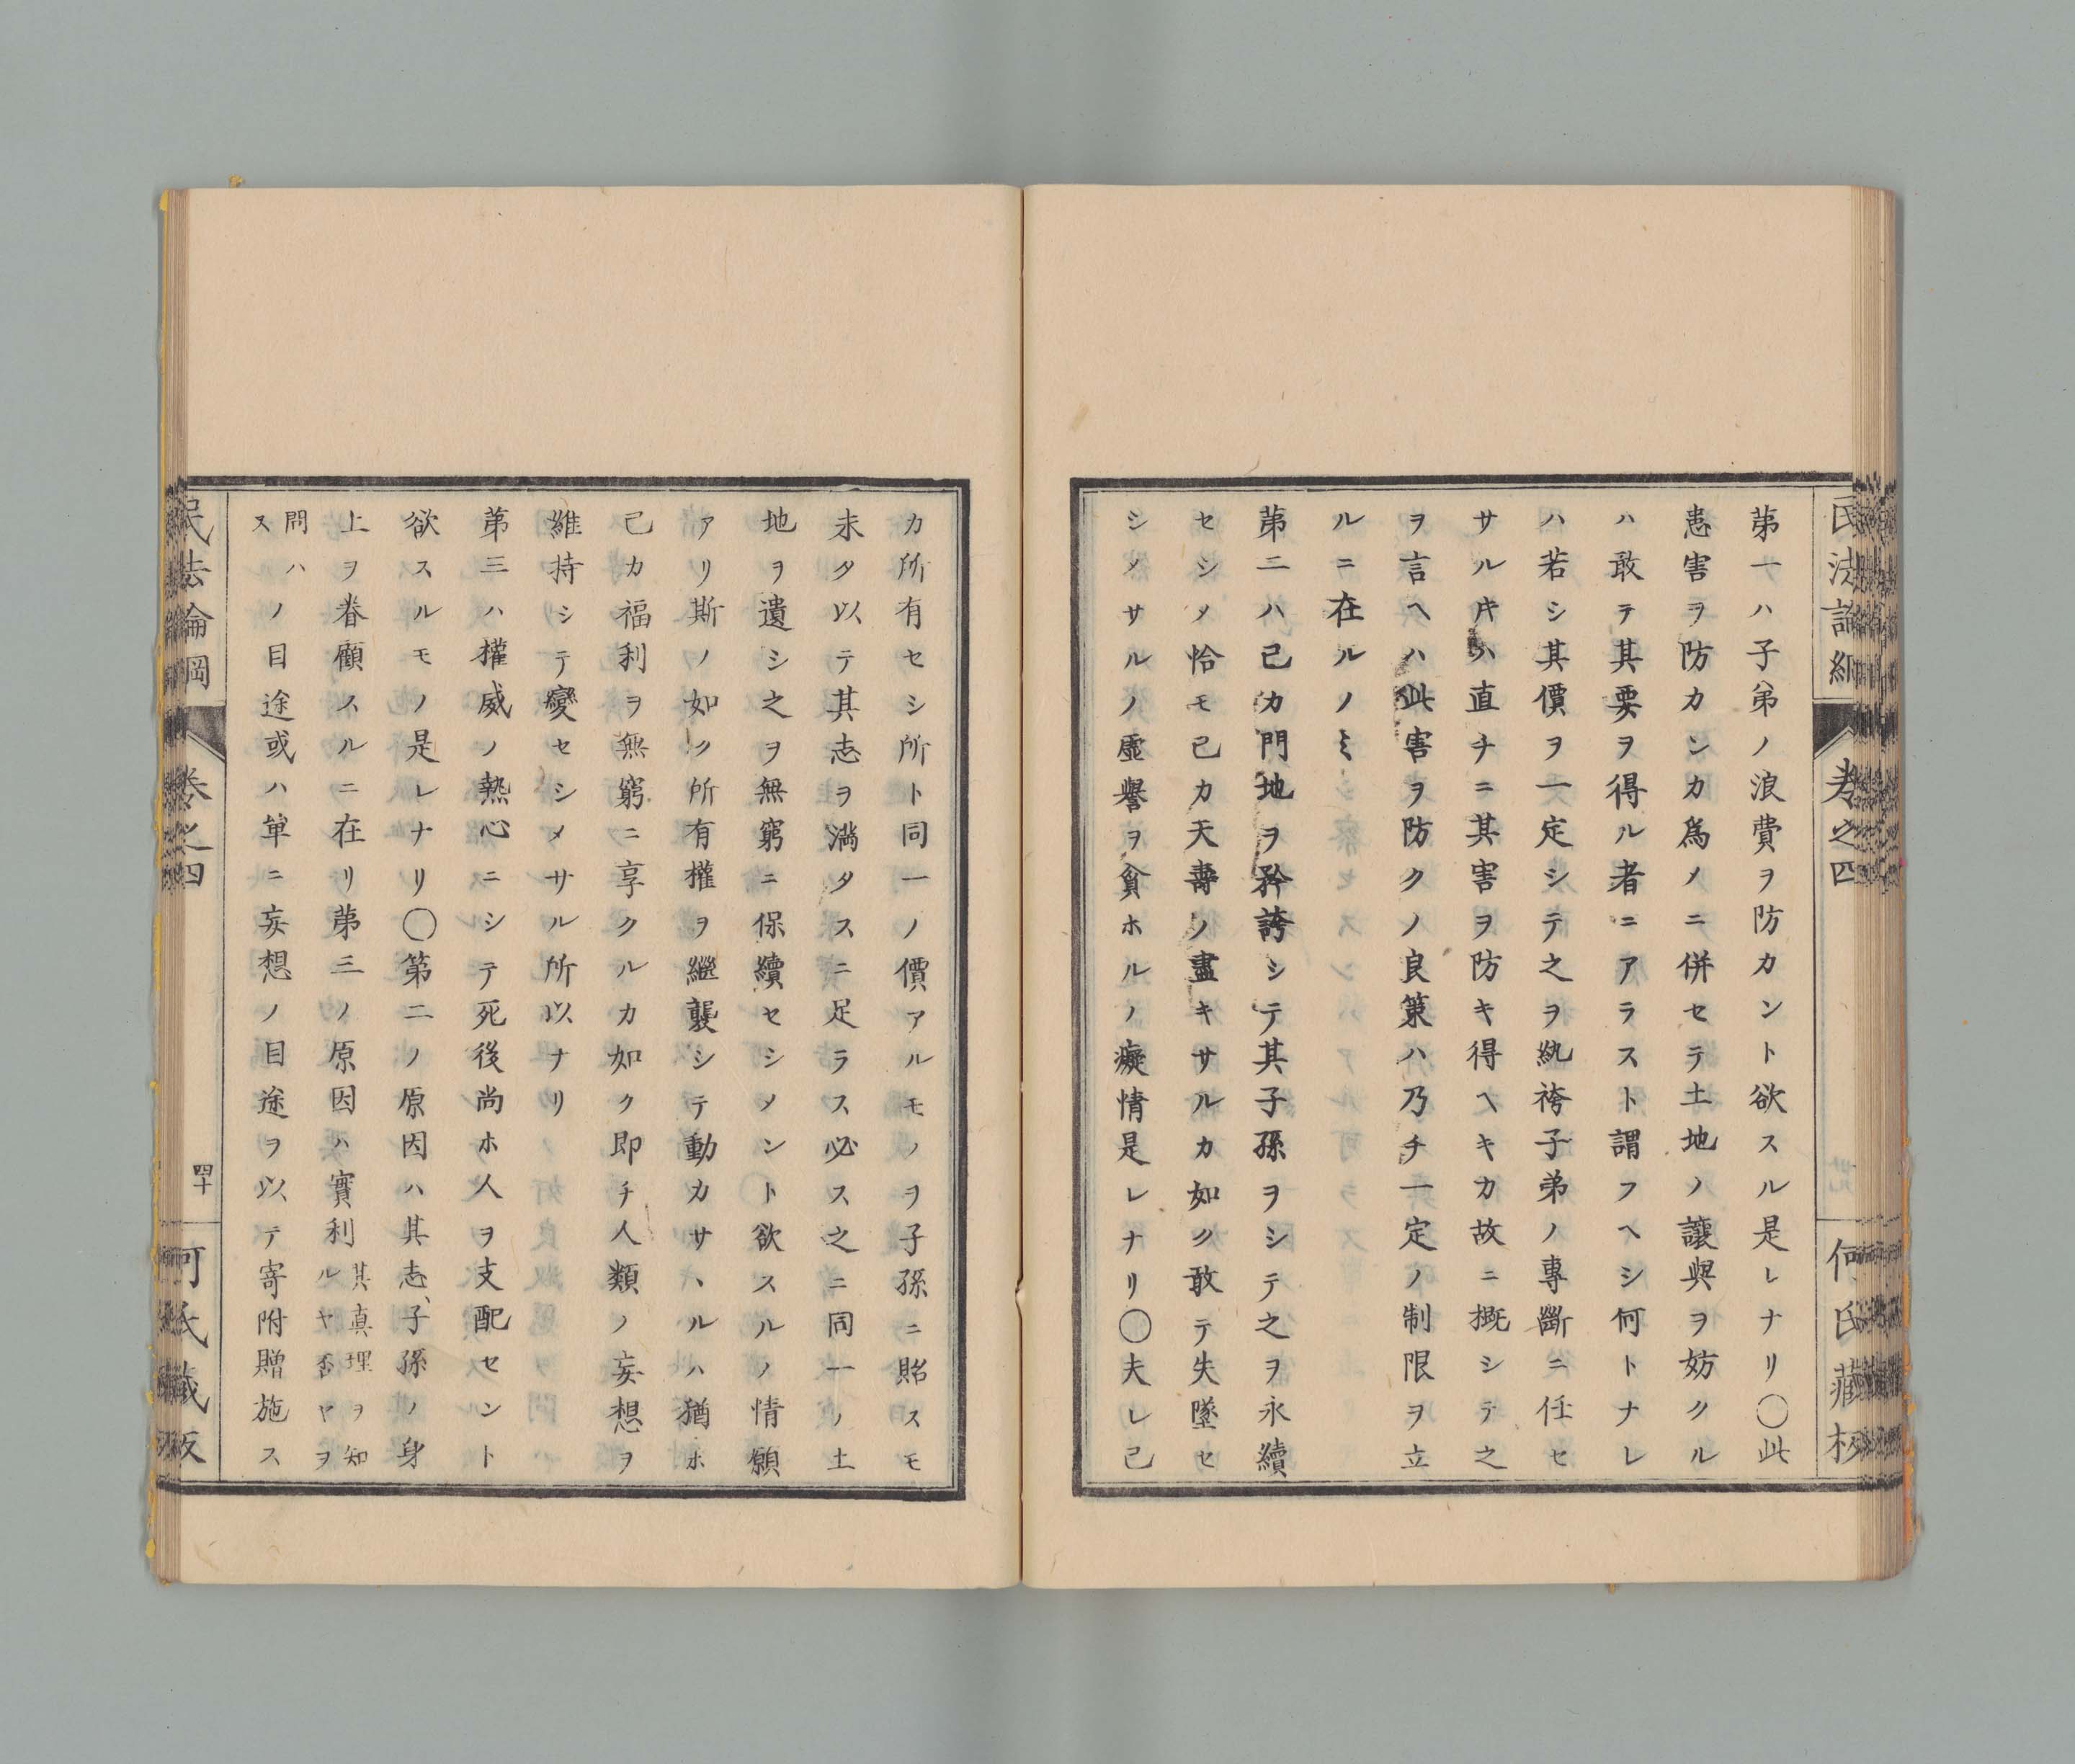 民法論綱
巻之四
何氏藏板
第一ハ子弟ノ浪費ヲ防カント欲スル是レナリ〇此
患害ヲ防カンカ為メニ併セテ土地ノ讓與ヲ妨クル
ハ敢テ其要ヲ得ル者ニアラスト謂フヘシ何トナレ
ハ若シ其價ヲ一定シテ之ヲ紈袴子弟ノ專斷ニ任セ
サル𪜈ハ直チニ其害ヲ防キ得ヘキカ故ニ概シテ之
ヲ言ヘハ此害ヲ防クノ良策ハ乃チ一定ノ制限ヲ立
ルニ在ルノミ
第二ハ己カ門地ヲ矜誇シテ其子孫ヲシテ之ヲ永續
セシメ恰モ己カ天壽ノ盡キサルカ如ク敢テ失墜セ
シメサルノ虚譽ヲ貪ホルノ癡情是レナリ〇夫レ己
カ所有セシ所ト同一ノ價アルモノヲ子孫ニ貽スモ
未タ以テ其志ヲ満タスニ足ラス必ス之ニ同一ノ土
地ヲ遺シ之ヲ無窮ニ保續セシメント欲スルノ情願
アリ斯ノ如ク所有權ヲ繼襲シテ動カサヽルハ猶ホ
己カ福利ヲ無窮ニ享クルカ如ク即チ人類ノ妄想ヲ
維持シテ變セシメサル所以ナリ
第三ハ權威ノ熱心ニシテ死後尚ホ人ヲ支配セント
欲スルモノ是レナリ〇第二ノ原因ハ其志、子孫ノ身
上ヲ眷顧スルニ在リ第三ノ原因ハ實利其真理ヲ知ルヤ否ヤヲ
問ハスノ目途或ハ単ニ妄想ノ目途ヲ以テ寄附贈施ス
民法論綱
巻之四
四十
何氏藏板